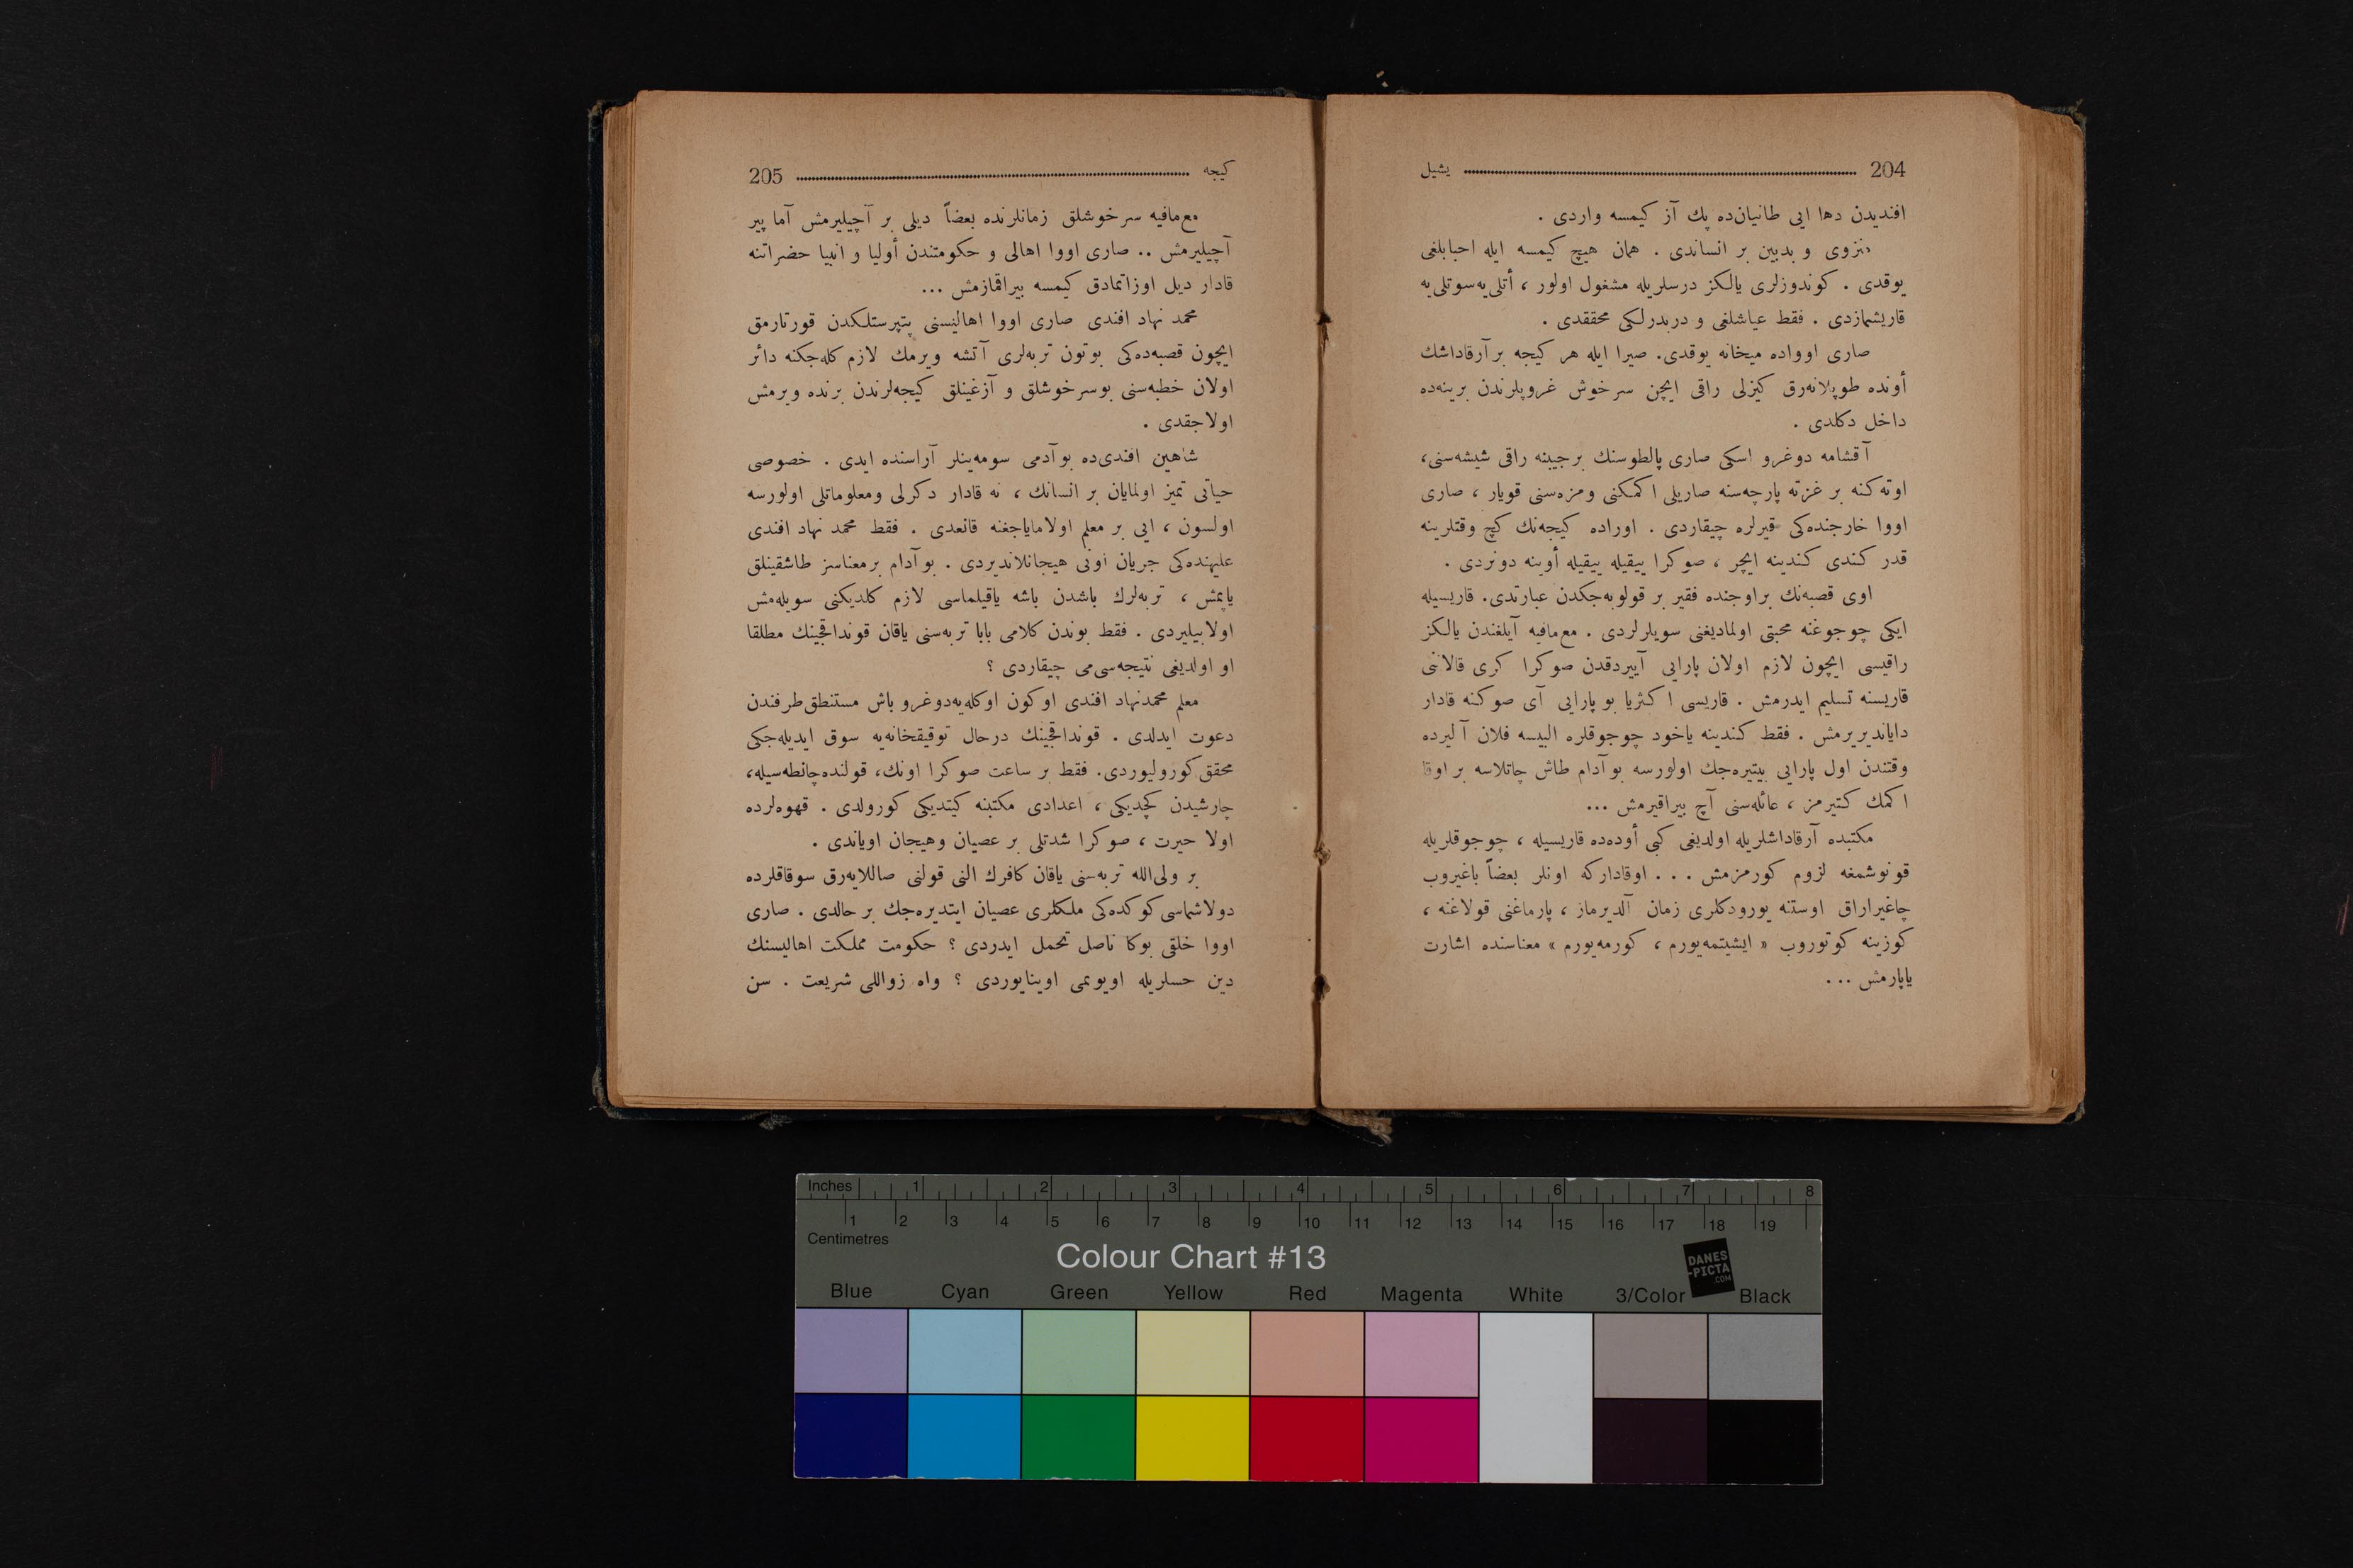 204 یشیل
افندیدن دها ایی طانیان‌ده پك آز كیمسه واردی .
منزوی و بدبین بر انساندی . همان هیچ كیمسه ایله احبابلغی
یوقدی . كوندوزلری یالكز درسلریله مشغول اولور ، أتلی‌یه سوتلی‌یه
قاریشمازدی . فقط عیاشلغی و دربدرلكی محققدی .
صاری اوواده میخانه یوقدی. صیرا ایله هر كیجه بر آرقاداشك
أونده طوپلانه‌رق كیزلی راقی ایچن سرخوش غروپلرندن برینه‌ده
داخل دكلدی .
آقشامه دوغرو اسكی صاری پالطوسنك برجیبنه راقی شیشه‌سنی،
اوته‌كنه بر غزته پارچه‌سنه صاریلی اكمكنی ومزه‌سنی قویار ، صاری
اووا خارجنده‌كی قیرلره چیقاردی . اوراده كیجه‌نك كچ وقتلرینه
قدر كندی كندینه ایچر ، صوكرا ییقیله ییقیله أوینه دونردی .
اوی قصبه‌نك براوجنده فقیر بر قولوبه‌جكدن عبارتدی. قاریسیله
ایكی چوجوغنه محبتی اولمادیغنی سویلرلردی . مع‌مافیه آیلغندن یالكز
راقیسی ایچون لازم اولان پارایی آییردقدن صوكرا كری قالاننی
قاریسنه تسلیم ایدرمش . قاریسی اكثریا بو پارایی آی صوكنه قادار
دایاندیریرمش . فقط كندینه یاخود چوجوقلره البیسه فلان آلیرده
وقتندن اول پارایی بیتیره‌جك اولورسه بو آدام طاش چاتلاسه بر اوقا
اكمك كتیرمز ، عائله‌سنی آچ بیراقیرمش ...
مكتبده آرقاداشلریله اولدیغی كبی أوده‌ده قاریسیله ، چوجوقلریله
قونوشمغه لزوم كورمزمش . . . اوقاداركه اونلر بعضاً باغیروب
چاغیراراق اوستنه یورودكلری زمان آلدیرماز ، پارماغنی قولاغنه ،
كوزینه كوتوروب « ایشیتمه‌یورم ، كورمه‌یورم » معناسنده اشارت
یاپارمش ...
كیجه 205
مع‌مافیه سرخوشلق زمانلرنده بعضاً دیلی بر آچیلیرمش آما پیر
آچیلیرمش .. صاری اووا اهالی و حكومتندن أولیا و انبیا حضراتنه
قادار دیل اوزاتمادق كیمسه بیراقمازمش ...
محمد نهاد افندی صاری اووا اهالیسنی پتپرستلكدن قورتارمق
ایچون قصبه‌ده‌كی بوتون تربه‌لری آتشه ویرمك لازم كله‌جكنه دائر
اولان خطبه‌سنی بوسرخوشلق و آزغینلق كیجه‌لرندن برنده ویرمش
اولاجقدی .
شاهین افندی‌ده بو آدمی سومه‌ینلر آراسنده ایدی . خصوصی
حیاتی تمیز اولمایان بر انسانك ، نه قادار دكرلی ومعلوماتلی اولورسه
اولسون ، ایی بر معلم اولامایاجغنه قانعدی . فقط محمد نهاد افندی
علیهنده‌كی جریان اونی هیجانلاندیردی . بو آدام برمعناسز طاشقینلق
یاپمش ، تربه‌لرك باشدن باشه یاقیلماسی لازم كلدیكنی سویله‌مش
اولابیلیردی . فقط بوندن كلامی بابا تربه‌سنی یاقان قونداقجینك مطلقا
او اولدیغی نتیجه‌سی‌می چیقاردی ؟
معلم محمدنهاد افندی اوكون اوكله‌یه‌دوغرو باش مستنطق‌طرفندن
دعوت ایدلدی . قونداقجینك درحال توقیقخانه‌یه سوق ایدیله‌جكی
محقق كورولیوردی. فقط بر ساعت صوكرا اونك، قولنده‌چانطه‌سیله،
چارشیدن كچدیكی ، اعدادی مكتبنه كیتدیكی كورولدی . قهوه‌لرده
اولا حیرت ، صوكرا شدتلی بر عصیان وهیجان اویاندی .
بر ولی‌الله تربه‌سنی یاقان كافرك النی قولنی صاللایه‌رق سوقاقلرده
دولاشماسی كوكده‌كی ملكلری عصیان ایتدیره‌جك بر حالدی . صاری
اووا خلقی بوكا ناصل تحمل ایدردی ؟ حكومت مملكت اهالیسنك
دین حسلریله اویونمی اوینایوردی ؟ واه زواللی شریعت . سن
Inches 1 2 3 4 5 6 7 8
1 2 3 4 5 6 7 8 9 10 11 12 13 14 15 16 17 18 19
Centimetres
Colour Chart #13
DANES
-PICTA
.COM
Blue Cyan Green Yellow Red Magenta White 3/Color Black